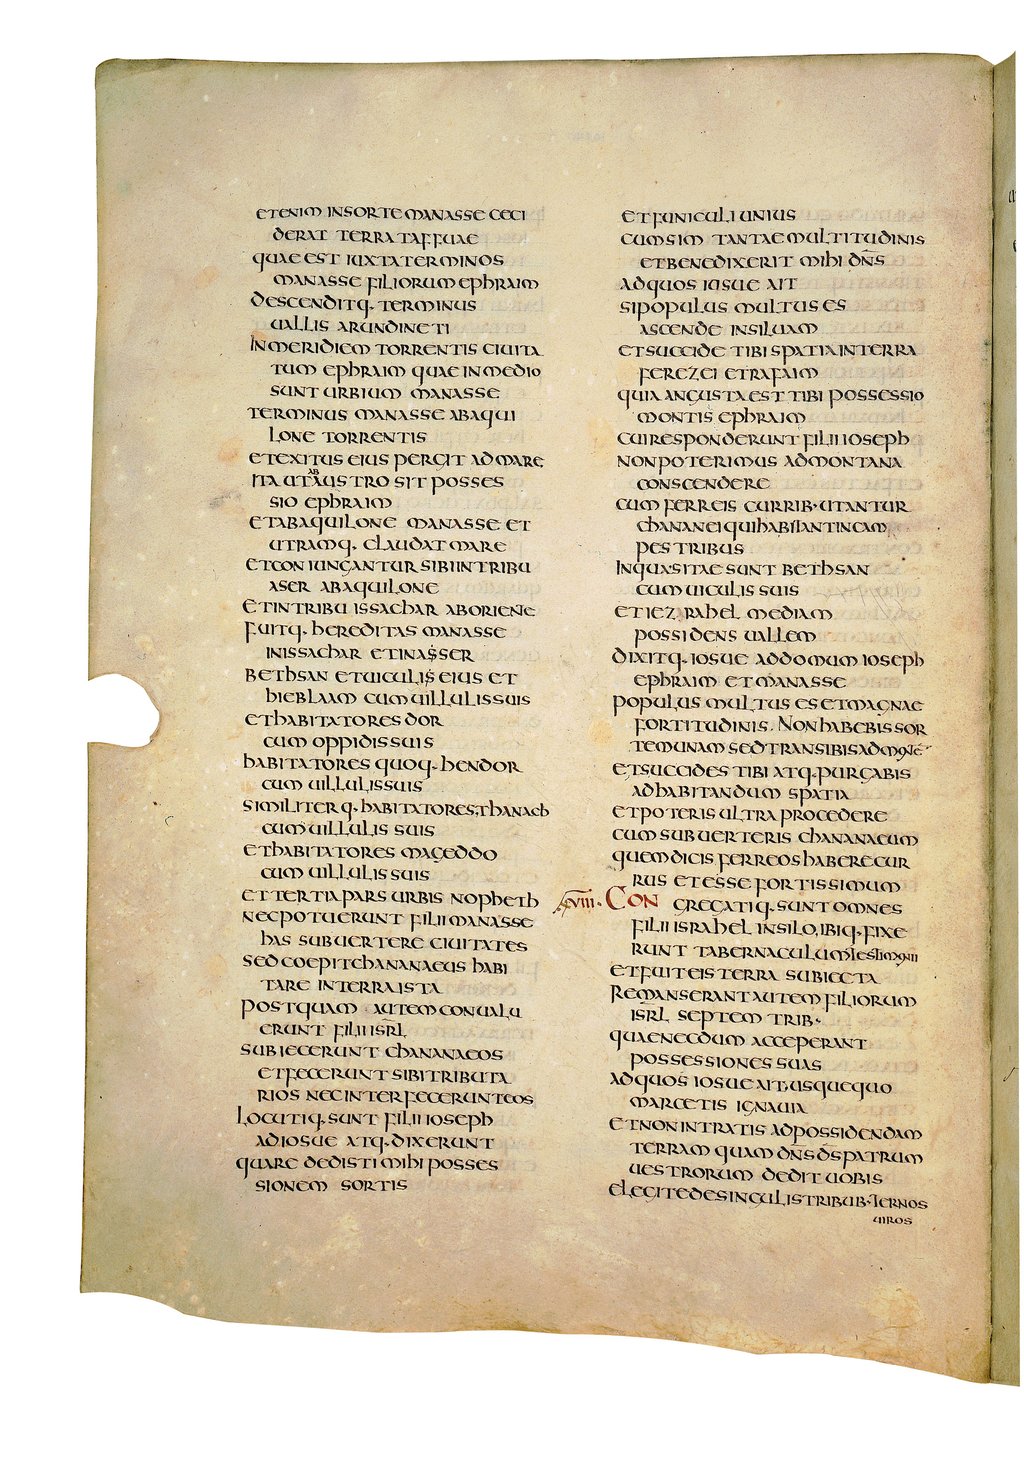 ETENIM INSORTE MANASSE CECI
DERAT TERRA TAFFUAE
QUAE EST IUXTA TERMINOS
MANASSE FILIORUM EPHRAIM
DESCENDITQ· TERMINUS
UALLIS ARUNDINETI
IN MERIDIEM TORRENTIS CIUITA
TUM EPHRAIM QUAE IN MEDIO
SUNT URBIUM MANASSE
TERMINUS MANASSE AB AQUI
LONE TORRENTIS
ET EXITUS EIUS PERGIT AD MARE
ITA UT AB AUSTRO SIT POSSES
SIO EPHRAIM
ET AB AQUILONE MANASSE ET
UTRAMQ· CLAUDAT MARE
ET CONIUNGANTUR SIBI IN TRIBU
ASER AB AQUILONE
ET IN TRIBU ISSACHAR AB ORIENE
FUITQ· HEREDITAS MANASSE
IN ISSACHAR ET IN ASSER
BETHSAN ET UICULIS EIUS ET
HIEBLAAM CUM UILLULIS SUIS
ET HABITATORES DOR
CUM OPPIDIS SUIS
HABITATORES QUOQ· HENDOR
CUM UILLULIS SUIS
SIMILITERQ· HABITATORES THANACH
CUM UILLULIS SUIS
ET HABITATORES MAGEDDO
CUM UILLULIS SUIS
ET TERTIA PARS URBIS NOPHETH
NEC POTUERUNT FILII MANASSE
HAS SUBUERTERE CIUITATES
SED COEPIT CHANANAEUS HABI
TARE IN TERRA ISTA
POSTQUAM AUTEM CONUALU
ERUNT FILII ISR̄L
SUBIECERUNT CHANANAEOS
ET FECERUNT SIBI TRIBUTA
RIOS NEC INTERFECERUNT EOS
LOCUTIQ· SUNT FILII IOSEPH
AD IOSUE ATQ· DIXERUNT
QUARE DEDISTI MIHI POSSES
SIONEM SORTIS
ET FUNICULI UNIUS
CUM SIM TANTAE MULTITUDINIS
ET BENEDIXERIT MIHI DN̄S
AD QUOS IOSUE AIT
SI POPULUS MULTUS ES
ASCENDE IN SILUAM
ET SUCCIDE TIBI SPATIA IN TERRA
FEREZEI ET RAFAIM
QUIA ANGUSTA EST TIBI POSSESSIO
MONTIS EPHRAIM
CUI RESPONDERUNT FILII IOSEPH
NON POTERIMUS AD MONTANA
CONSCENDERE
CUM FERREIS CURRIB· UTANTUR
CHANANEI QUI HABITANT IN CAM
PESTRIBUS
IN QUA SITAE SUNT BETHSAN
CUM UICULIS SUIS
ET IEZRAHEL MEDIAM
POSSIDENS UALLEM
DIXITQ· IOSUE AD DOMUM IOSEPH
EPHRAIM ET MANASSE
POPULUS MULTUS ES ET MAGNAE
FORTITUDINIS. NON HABEBIS SOR
TEM UNAM SED TRANSIBIS AD
ET SUCCIDES TIBI ATQ· PURGABIS
AD HABITANDUM SPATIA
ET POTERIS ULTRA PROCEDERE
CUM SUBUERTERIS CHANANAEUM
QUEM DICIS FERREOS HABERE CUR
RUS ET ESSE FORTISSIMUM
XVIII· CON GREGATIQ· SUNT OMNES
FILII ISRAHEL IN SILO, IBIQ· FIXE
RUNT TABERNACULUM TESTIMONII
ET FUIT EIS TERRA SUBIECTA
REMANSERANT AUTEM FILIORUM
ISR̄L SEPTEM TRIB·
QUAE NECDUM ACCEPERANT
POSSESSIONES SUAS
AD QUOS IOSUE AIT, USQUEQUO
MARCETIS IGNAUIA
ET NON INTRATIS AD POSSIDENDAM
TERRAM QUAM DN̄S D̄S PATRUM
UESTRORUM DEDIT UOBIS
ELEGITE DE SINGULIS TRIBUB· TERNOS
UIROS